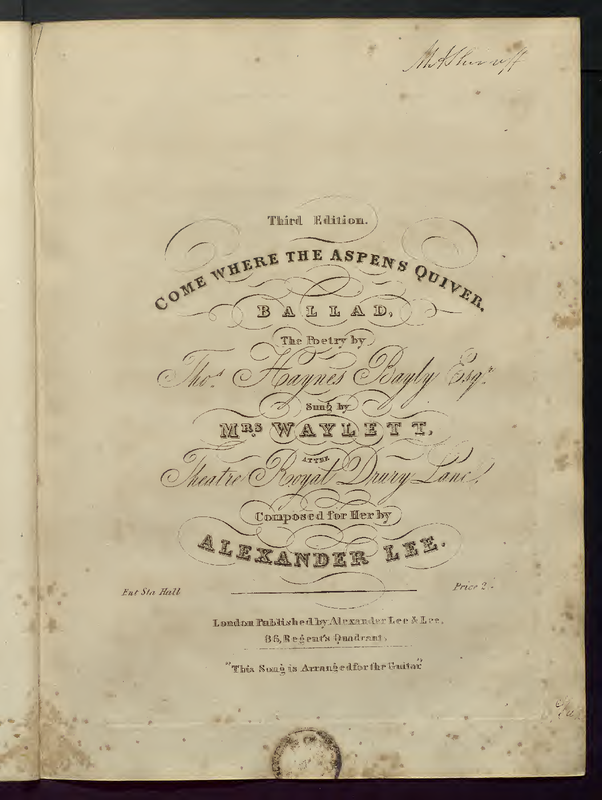 Third Edition.
COME WHERE THE ASPENS QUIVER,
BALLAD,
The Poetry by
Thos. Haynes Bayly Esqr.
Sung by
MRS WAYLETT,
AT THE
Theatre Royal Drury Lane,
Composed for Her by
ALEXANDER LEE.
Ent Sta Hall
Price 2/-
London Published by Alexander Lee & Lee,
86, Regent's Quadrant.
"This Song is Arranged for the Guitar"